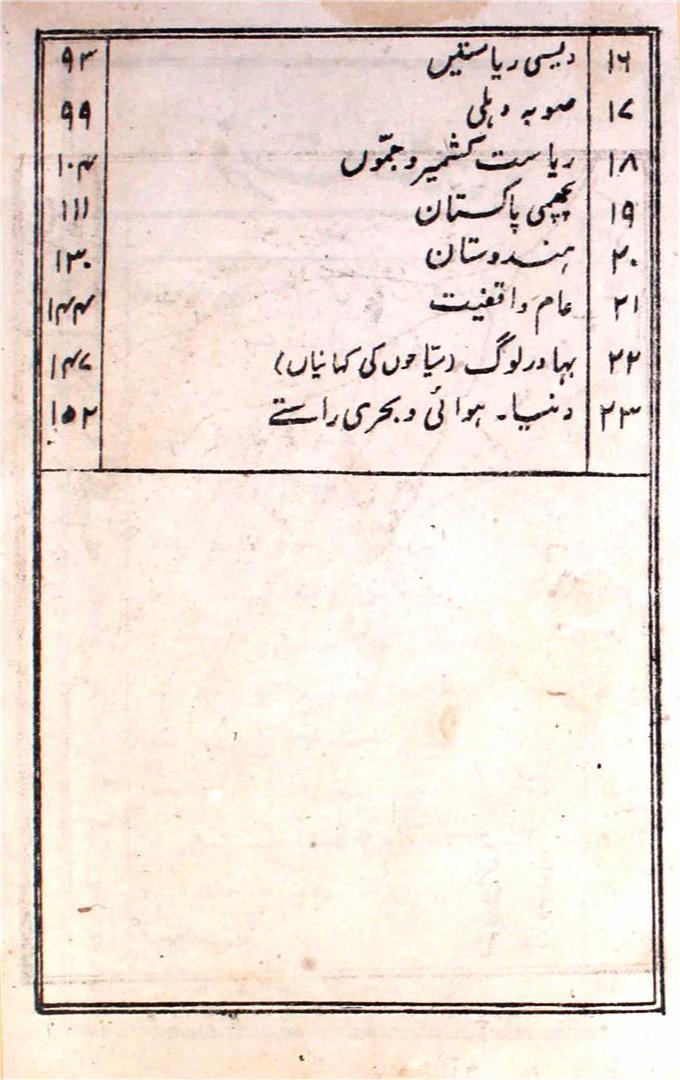 ۱۶ دیسی ریاستیں ۹۳
۱۷ صوبہ دہلی ۹۹
۱۸ ریاست کشمیر و جمّوں ۱۰۴
۱۹ پچھمی پاکستان ۱۱۱
۲۰ ہندوستان ۱۳۰
۲۱ عام واقفیت ۱۴۴
۲۲ بہادر لوگ (سیّاحوں کی کہانیاں) ۱۴۷
۲۳ دنیا۔ ہوائی و بحری راستے ۱۵۲